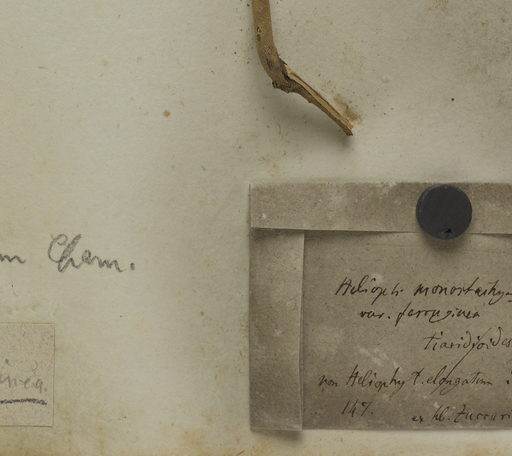 m Cham.
inea.
Helioph. monostachya
var. ferruginea
tiaridioides
non Heliophyt. elongatum
147. ex hb. Zuccari